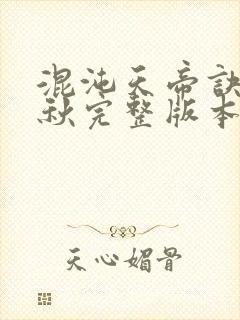 混沌天帝訣
秋完整版本
天心媚骨